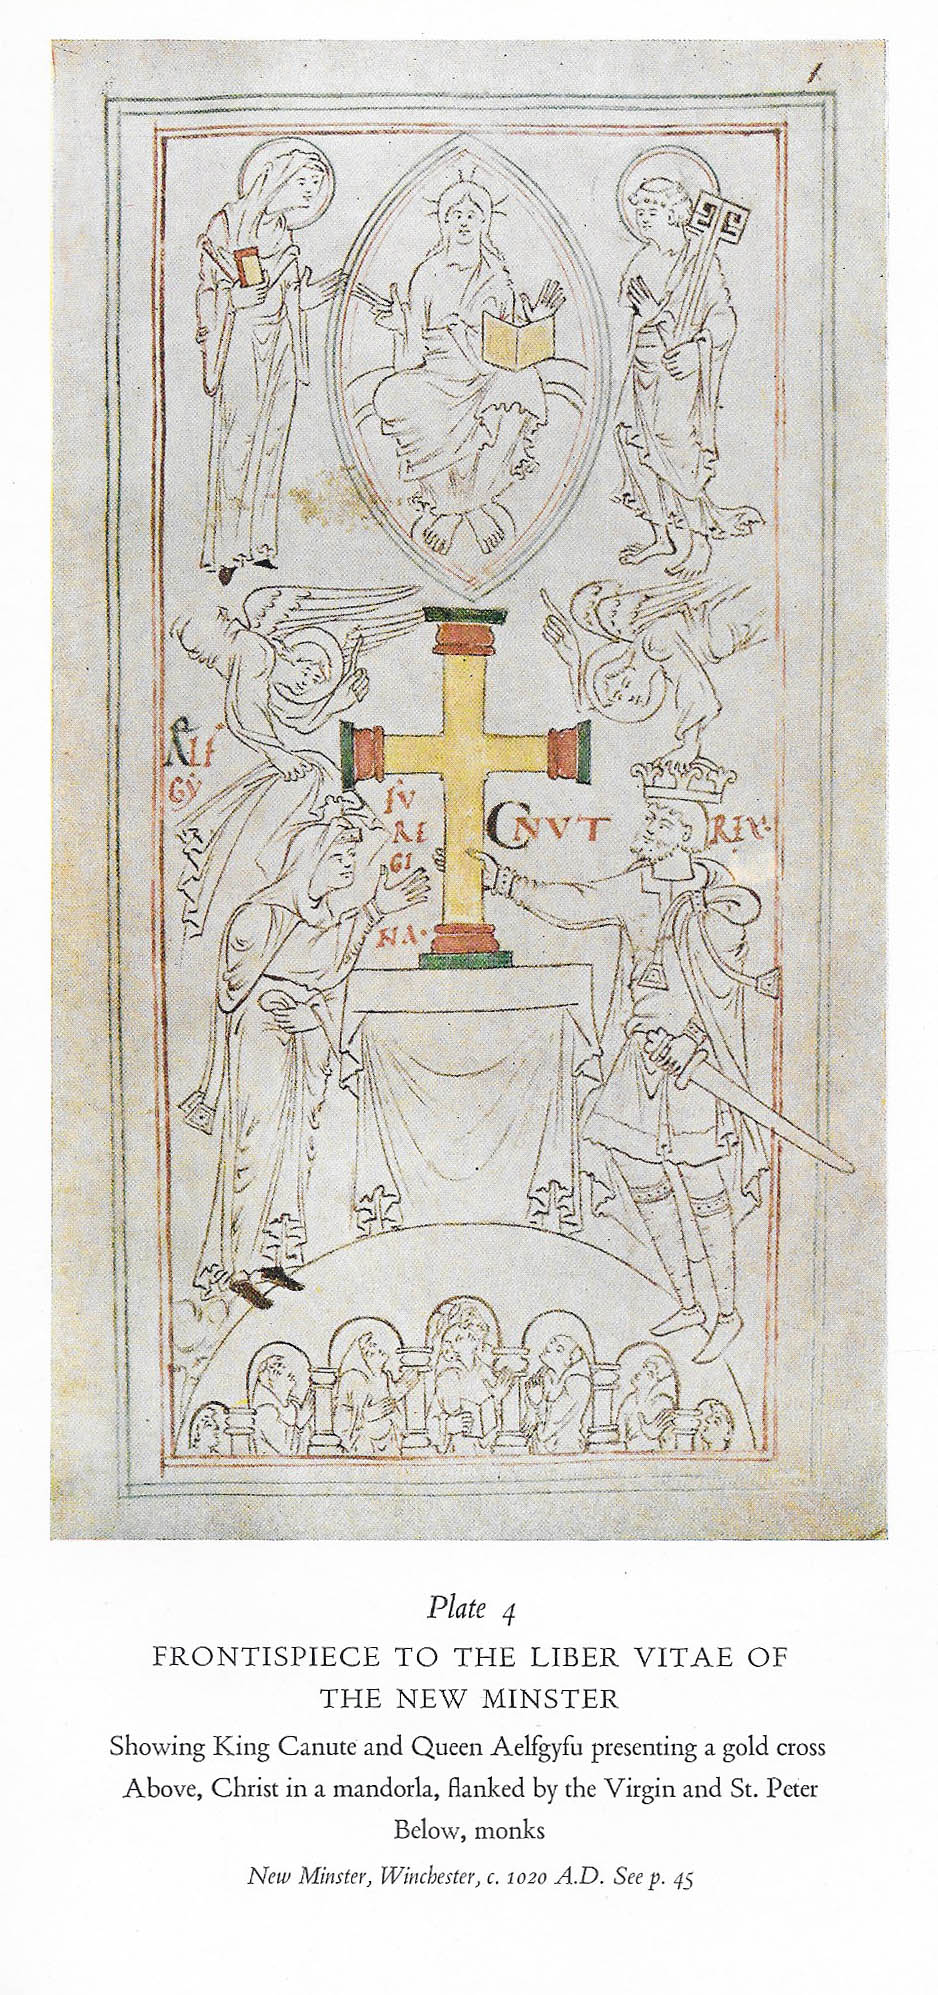 1
ÆLF
GY
FV
RE
GI
NA·
CNVT
REX·
Plate 4
FRONTISPIECE TO THE LIBER VITAE OF
THE NEW MINSTER
Showing King Canute and Queen Aelfgyfu presenting a gold cross
Above, Christ in a mandorla, flanked by the Virgin and St. Peter
Below, monks
New Minster, Winchester, c. 1020 A.D. See p. 45